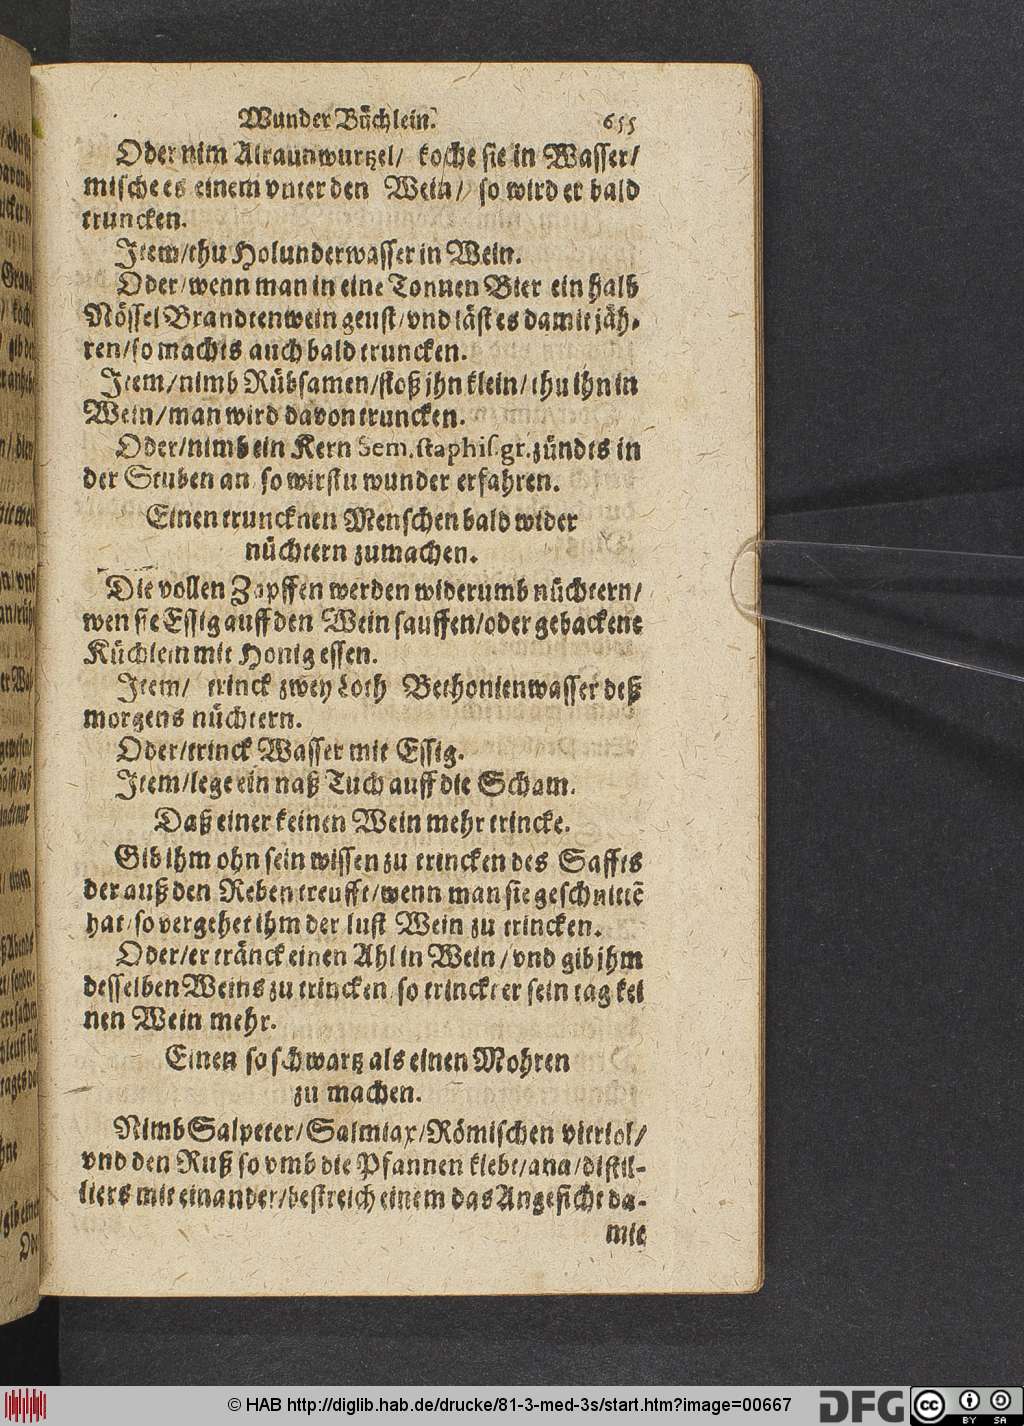 Wunder Büchlein. 655
Oder nim Alraunwurtzel/ koche sie in Wasser/
mische es einem vnter den Wein/ so wird er bald
truncken.
Item/thu Holunderwasser in Wein.
Oder/wenn man in eine Tonnen Bier ein halb
Nössel Brandtenwein geust/vnd läst es damit jäh-
ren/so machts auch bald truncken.
Item/nimb Rübsamen/stoß jhn klein/thu ihn in
Wein/man wird davon truncken.
Oder/nimb ein Kern Sem. staphis. gr. zündts in
der Stuben an/so wirstu wunder erfahren.
Einen truncknen Menschen bald wider
nüchtern zumachen.
Die vollen Zapffen werden widerumb nüchtern/
wen sie Essig auff den Wein sauffen/oder gebackene
Küchlein mit Honig essen.
Item/ trinck zwey Loth Bethonienwasser deß
morgens nüchtern.
Oder/trinck Wasser mit Essig.
Item/lege ein naß Tuch auff die Scham.
Daß einer keinen Wein mehr trincke.
Gib ihm ohn sein wissen zu trincken des Saffts
der auß den Reben treufft/wenn man sie geschnittē
hat/so vergehet ihm der lust Wein zu trincken.
Oder/ertränck einen Ahl in Wein/vnd gib jhm
desselben Weins zu trincken/so trinckt er sein tag kei
nen Wein mehr.
Einen so schwartz als einen Mohren
zu machen.
Nimb Salpeter/Salmiax/Römischen vitriol/
vnd den Ruß so vmb die Pfannen klebt/ana/distil-
liers mit einander/bestreich einem das Angesicht da-
mit
© HAB http://diglib.hab.de/drucke/81-3-med-3s/start.htm?image=00667
DFG
cc BY SA